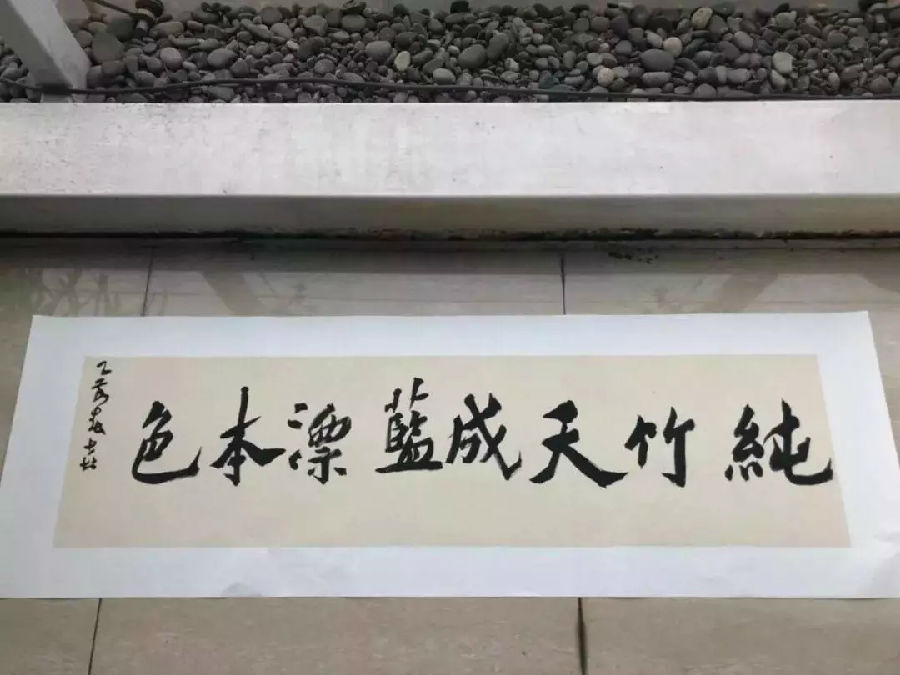 純竹天成藍漂本色